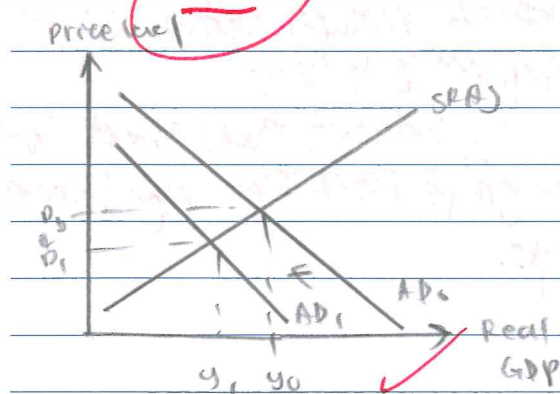 Price level
SRAS
P0
P1
AD0
AD1
Real
GDP
y1 y0